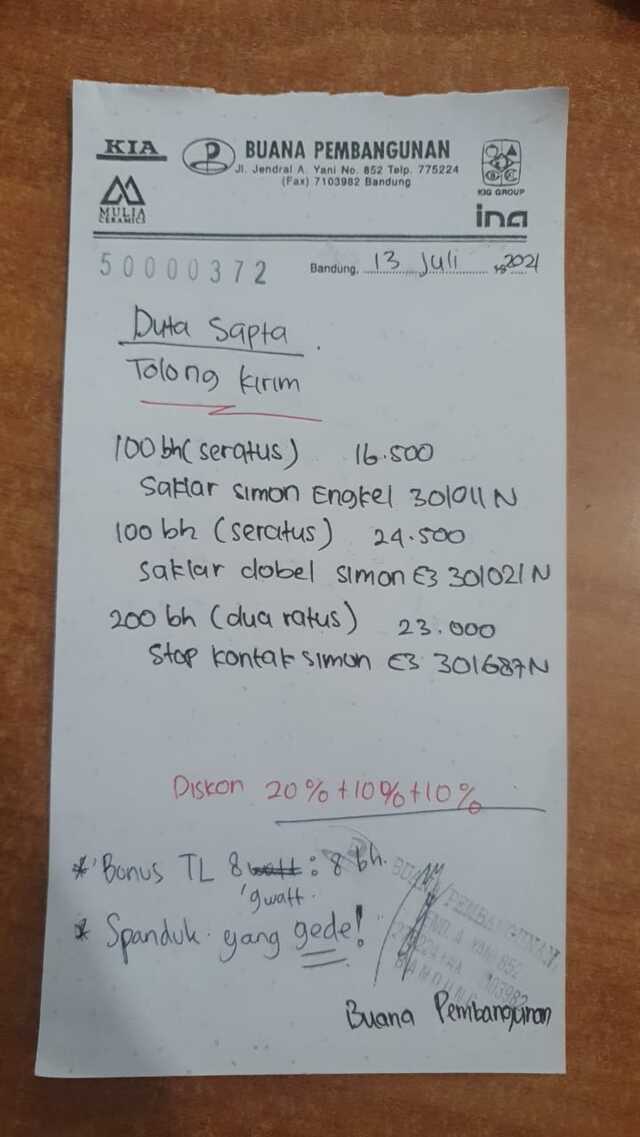 KIA
BUANA PEMBANGUNAN
Jl. Jendral A. Yani No. 852 Telp. 775224
(Fax) 7103982 Bandung
MULIA
CERAMICS
KIG GROUP
ina
50000372
Bandung, 13 Juli 2021
Duta Sapta
Tolong Kirim
100 bh (seratus) 16.500
Saklar simon Engkel 301011N
100 bh (seratus) 24.500
saklar dobel simon E3 301021N
200 bh (dua ratus) 23.000
Stop kontak simon E3 301687N
Diskon 20% + 10% + 10%
* Bonus TL 8 watt : 8 bh.
9watt.
* Spanduk yang gede!
BUANA PEMBANGUNAN
A YANI 852
BANDUNG
Buana Pembangunan